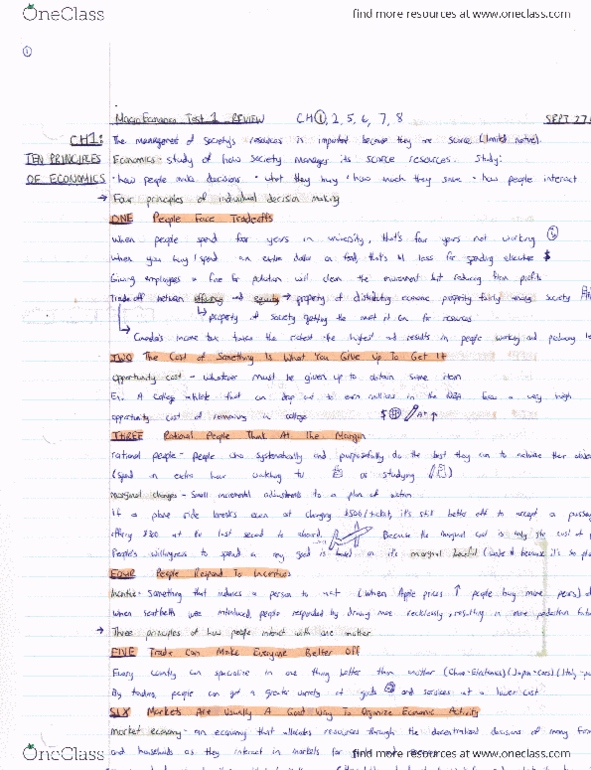 OneClass
find more resources at www.oneclass.com
①
MacroEconomics Test 1 REVIEW CH①, 2, 5, 6, 7, 8 SEPT 27
CH1: The management of society's resources is important because they are scarce (limited nature)
TEN PRINCIPLES Economics - study of how society manages its scarce resources. Study:
OF ECONOMICS • how people make decisions • what they buy • how much they save • how people interact
→ Four principles of individual decision making
ONE People Face Tradeoffs
When people spend four years in university, that's four years not working
When you buy/spend an extra dollar on food, that's $1 less for spending $
Giving employees a fine for pollution will clean the but reducing firm profits
Trade off between efficiency and equity → property of distributing economic prosperity fairly among society
↳ property of society getting the most it can for resources
Canada's income tax taxes the richest the highest and results in people working and
TWO The Cost of Something Is What You Give Up To Get It
opportunity cost - whatever must be given up to obtain some item
Ex. A college athlete that can drop out to earn millions in the NBA face a very high
opportunity cost of remaining in college
THREE Rational People Think At The Margin
rational people - people who systematically and purposefully do the best they can to achieve their
(spend an extra hour watching tv or studying)
marginal changes - small incremental adjustments to a plan of action
If a plane side breaks even at charging $500/ticket, it's still better off to accept a
offering $300 at the last second is aboard. Because the marginal cost is only the cost of
People's willingness to spend a any good is based on its marginal benefit
FOUR People Respond To Incentives
Incentive - Something that induces a person to act (When Apple prices ↑ people buy more pears)
When seatbelts were introduced, people responded by driving more recklessly, resulting in more pedestrian
→ Three principles of how people interact with one another
FIVE Trade Can Make Everyone Better Off
Every country can specialize in one thing better than another (China-Electronics)(Japan-Cars)(Italy-
By trading, people can get a greater variety of goods and services at a lower cost
SIX Markets Are Usually A Good Way To Organize Economic Activity
market economy - an economy that allocates resources through the decentralized decisions of many firms
and households as they interact in markets for
OneClass
find more resources at www.oneclass.com